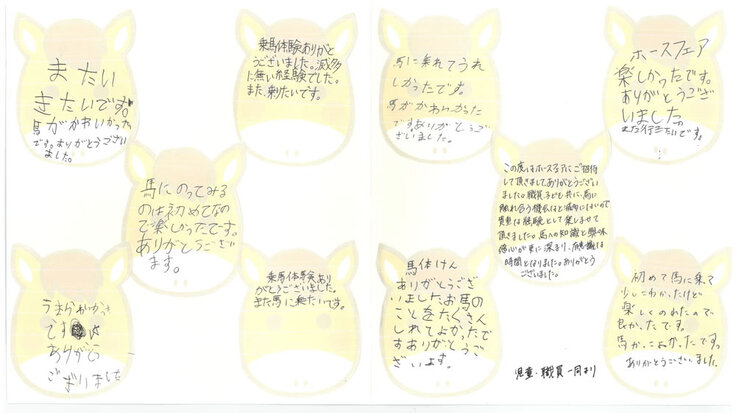 またい
きたいです。
馬がかわいかった
です。ありがとうござい
ました。
乗馬体験ありがと
うございました。滅多
に無い経験でした。
また来たいです。
馬にのってみる
のは初めてなの
で楽しかったです。
ありがとうござい
ます。
うまがかわいかった
です
ありがとう
ございました
乗馬体験あり
がとうございました。
また馬に乗たいです。
馬に乗れてうれ
しかったです。
馬がかわいかった
ですありがとうご
ざいました。
ホースフェア
楽しかったです。
ありがとうござ
いました。
また行きたいです。
この度はホースフェアにご招待
して頂きましてありがとうござい
ました。職員、子ども共に、馬に
触れ合う機会はなど滅多にないので
貴重な経験として楽しませて
頂きました。馬への知識と興味
関心が更に深まり、有意義な
時間となりました。ありがとう
ございました。
馬体けん
ありがとうござ
いましたお馬の
ことをたくさん
しれてよかったで
すありがとうご
ざいます。
児童・職員一同より
初めて馬に乗て
少しこわかったけど
楽しくのれたので
良かったです。
馬がかわいかったです。
ありがとうございました。